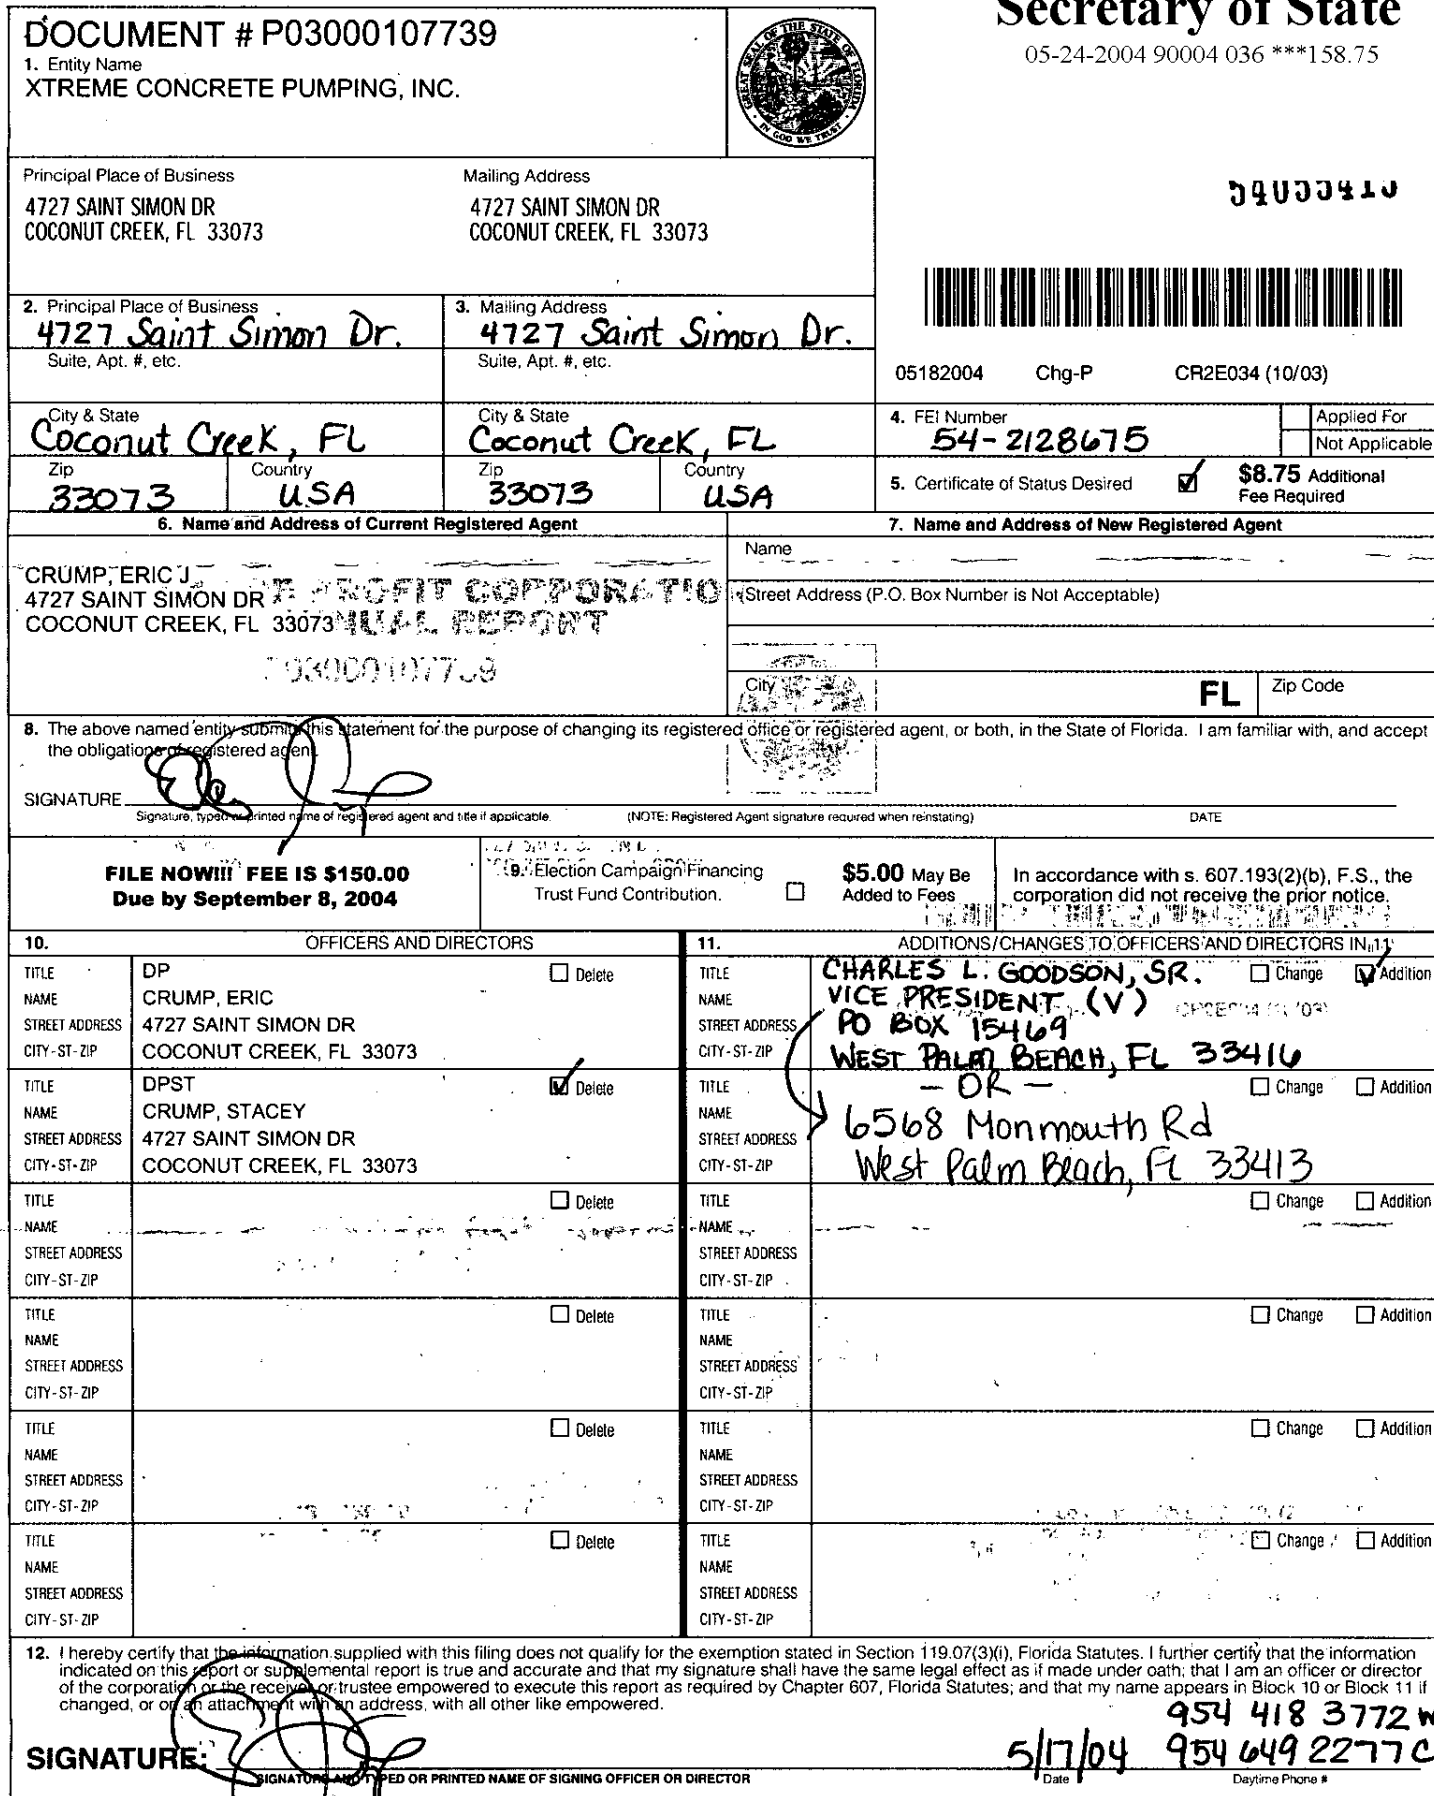 Secretary of State
05-24-2004 90004 036 ***158.75
DOCUMENT # P03000107739
1. Entity Name
XTREME CONCRETE PUMPING, INC.
GREAT SEAL OF THE STATE OF FLORIDA
IN GOD WE TRUST
Principal Place of Business
4727 SAINT SIMON DR
COCONUT CREEK, FL 33073
Mailing Address
4727 SAINT SIMON DR
COCONUT CREEK, FL 33073
2. Principal Place of Business
4727 Saint Simon Dr.
Suite, Apt. #, etc.
City & State
Coconut Creek, FL
Zip
33073
Country
USA
3. Mailing Address
4727 Saint Simon Dr.
Suite, Apt. #, etc.
City & State
Coconut Creek, FL
Zip
33073
Country
USA
05182004 Chg-P CR2E034 (10/03)
4. FEI Number
54-2128675
Applied For
Not Applicable
5. Certificate of Status Desired
$8.75 Additional
Fee Required
6. Name and Address of Current Registered Agent
CRUMP, ERIC J
4727 SAINT SIMON DR
COCONUT CREEK, FL 33073
PROFIT CORPORATIO
NUAL REPORT
P03000107739
7. Name and Address of New Registered Agent
Name
Street Address (P.O. Box Number is Not Acceptable)
City
FL
Zip Code
8. The above named entity submits this statement for the purpose of changing its registered office or registered agent, or both, in the State of Florida. I am familiar with, and accept
the obligations of registered agent.
SIGNATURE
Signature, typed or printed name of registered agent and title if applicable. (NOTE: Registered Agent signature required when reinstating) DATE
FILE NOW!!! FEE IS $150.00
Due by September 8, 2004
9. Election Campaign Financing
Trust Fund Contribution.
$5.00 May Be
Added to Fees
In accordance with s. 607.193(2)(b), F.S., the
corporation did not receive the prior notice.
10. OFFICERS AND DIRECTORS
TITLE DP Delete
NAME CRUMP, ERIC
STREET ADDRESS 4727 SAINT SIMON DR
CITY-ST-ZIP COCONUT CREEK, FL 33073
TITLE DPST Delete
NAME CRUMP, STACEY
STREET ADDRESS 4727 SAINT SIMON DR
CITY-ST-ZIP COCONUT CREEK, FL 33073
TITLE Delete
NAME
STREET ADDRESS
CITY-ST-ZIP
TITLE Delete
NAME
STREET ADDRESS
CITY-ST-ZIP
TITLE Delete
NAME
STREET ADDRESS
CITY-ST-ZIP
TITLE Delete
NAME
STREET ADDRESS
CITY-ST-ZIP
11. ADDITIONS/CHANGES TO OFFICERS AND DIRECTORS IN 11
TITLE CHARLES L. GOODSON, SR. Change Addition
NAME VICE PRESIDENT (V)
STREET ADDRESS PO BOX 15469
CITY-ST-ZIP WEST PALM BEACH, FL 33416
TITLE - OR - Change Addition
NAME 6568 Monmouth Rd
STREET ADDRESS
CITY-ST-ZIP West Palm Beach, FL 33413
TITLE Change Addition
NAME
STREET ADDRESS
CITY-ST-ZIP
TITLE Change Addition
NAME
STREET ADDRESS
CITY-ST-ZIP
TITLE Change Addition
NAME
STREET ADDRESS
CITY-ST-ZIP
TITLE Change Addition
NAME
STREET ADDRESS
CITY-ST-ZIP
12. I hereby certify that the information supplied with this filing does not qualify for the exemption stated in Section 119.07(3)(i), Florida Statutes. I further certify that the information
indicated on this report or supplemental report is true and accurate and that my signature shall have the same legal effect as if made under oath; that I am an officer or director
of the corporation or the receiver or trustee empowered to execute this report as required by Chapter 607, Florida Statutes; and that my name appears in Block 10 or Block 11 if
changed, or on an attachment with an address, with all other like empowered.
954 418 3772 W
SIGNATURE: 5/17/04 954 649 2277 C
SIGNATURE AND TYPED OR PRINTED NAME OF SIGNING OFFICER OR DIRECTOR Date Daytime Phone #